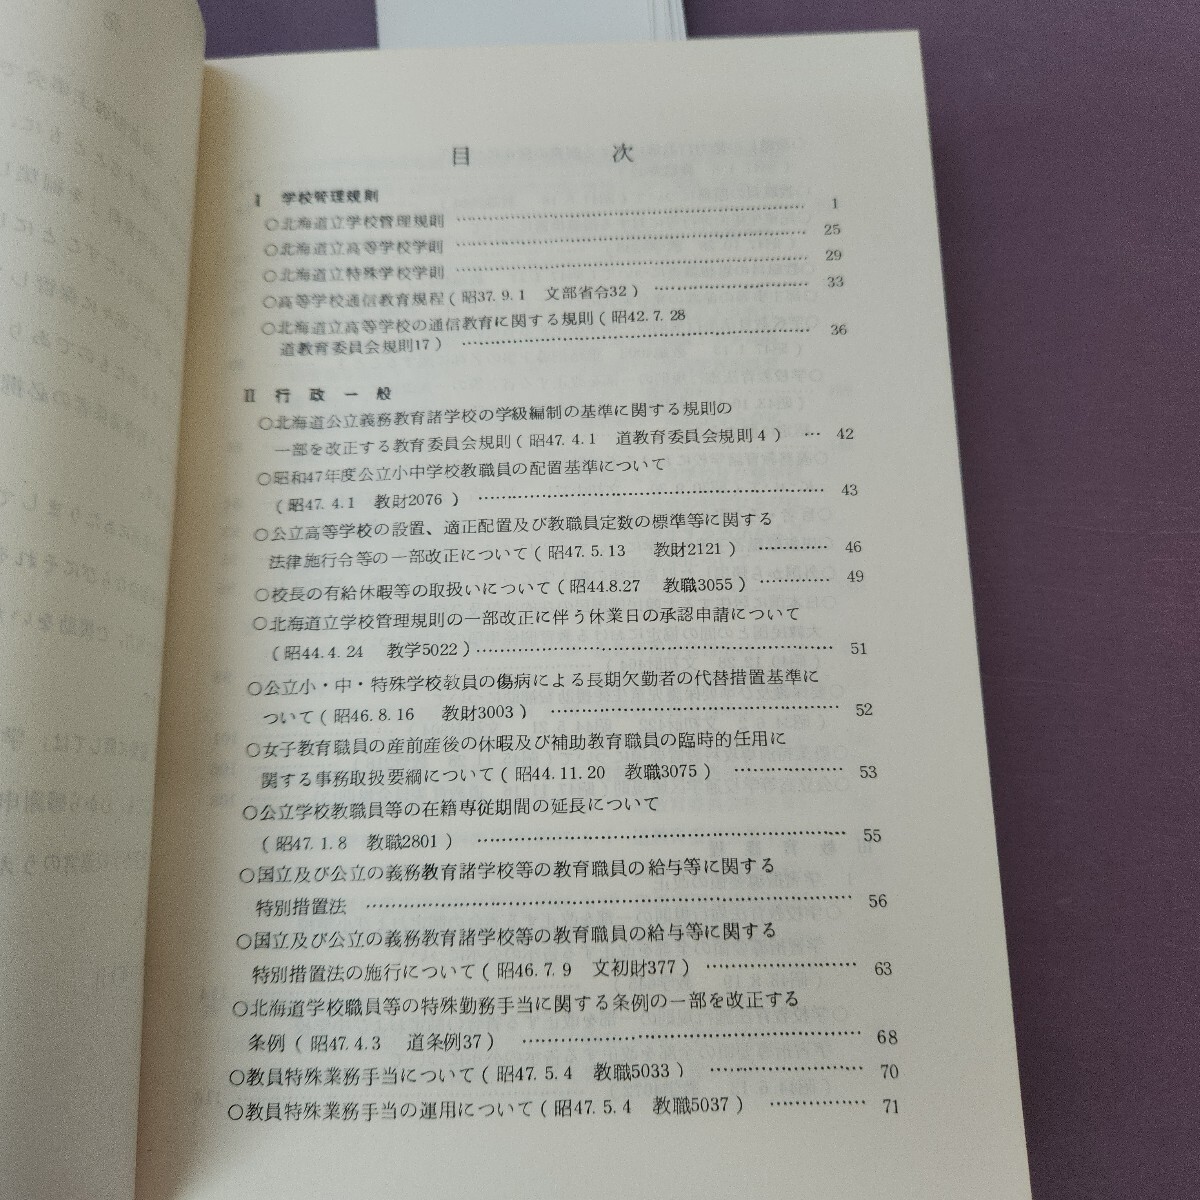 目次
Ⅰ 学校管理規則
○北海道立学校管理規則 …… 1
○北海道立高等学校学則 …… 25
○北海道立特殊学校学則 …… 29
○高等学校通信教育規程(昭37.9.1 文部省令32) …… 33
○北海道立高等学校の通信教育に関する規則(昭42.7.28
道教育委員会規則17) …… 36
Ⅱ 行政一般
○北海道公立義務教育諸学校の学級編制の基準に関する規則の
一部を改正する教育委員会規則(昭47.4.1 道教育委員会規則4) … 42
○昭和47年度公立小中学校教職員の配置基準について
(昭47.4.1 教財2076) …… 43
○公立高等学校の設置、適正配置及び教職員定数の標準等に関する
法律施行令等の一部改正について(昭47.5.13 教財2121) …… 46
○校長の有給休暇等の取扱いについて(昭44.8.27 教職3055) …… 49
○北海道立学校管理規則の一部改正に伴う休業日の承認申請について
(昭44.4.24 教学5022) …… 51
○公立小・中・特殊学校教員の傷病による長期欠勤者の代替措置基準に
ついて(昭46.8.16 教財3003) …… 52
○女子教育職員の産前産後の休暇及び補助教育職員の臨時的任用に
関する事務取扱要綱について(昭44.11.20 教職3075) …… 53
○公立学校教職員等の在籍専従期間の延長について
(昭47.1.8 教職2801) …… 55
○国立及び公立の義務教育諸学校等の教育職員の給与等に関する
特別措置法 …… 56
○国立及び公立の義務教育諸学校等の教育職員の給与等に関する
特別措置法の施行について(昭46.7.9 文初財377) …… 63
○北海道学校職員等の特殊勤務手当に関する条例の一部を改正する
条例(昭47.4.3 道条例37) …… 68
○教員特殊業務手当について(昭47.5.4 教職5033) …… 70
○教員特殊業務手当の運用について(昭47.5.4 教職5037) …… 71